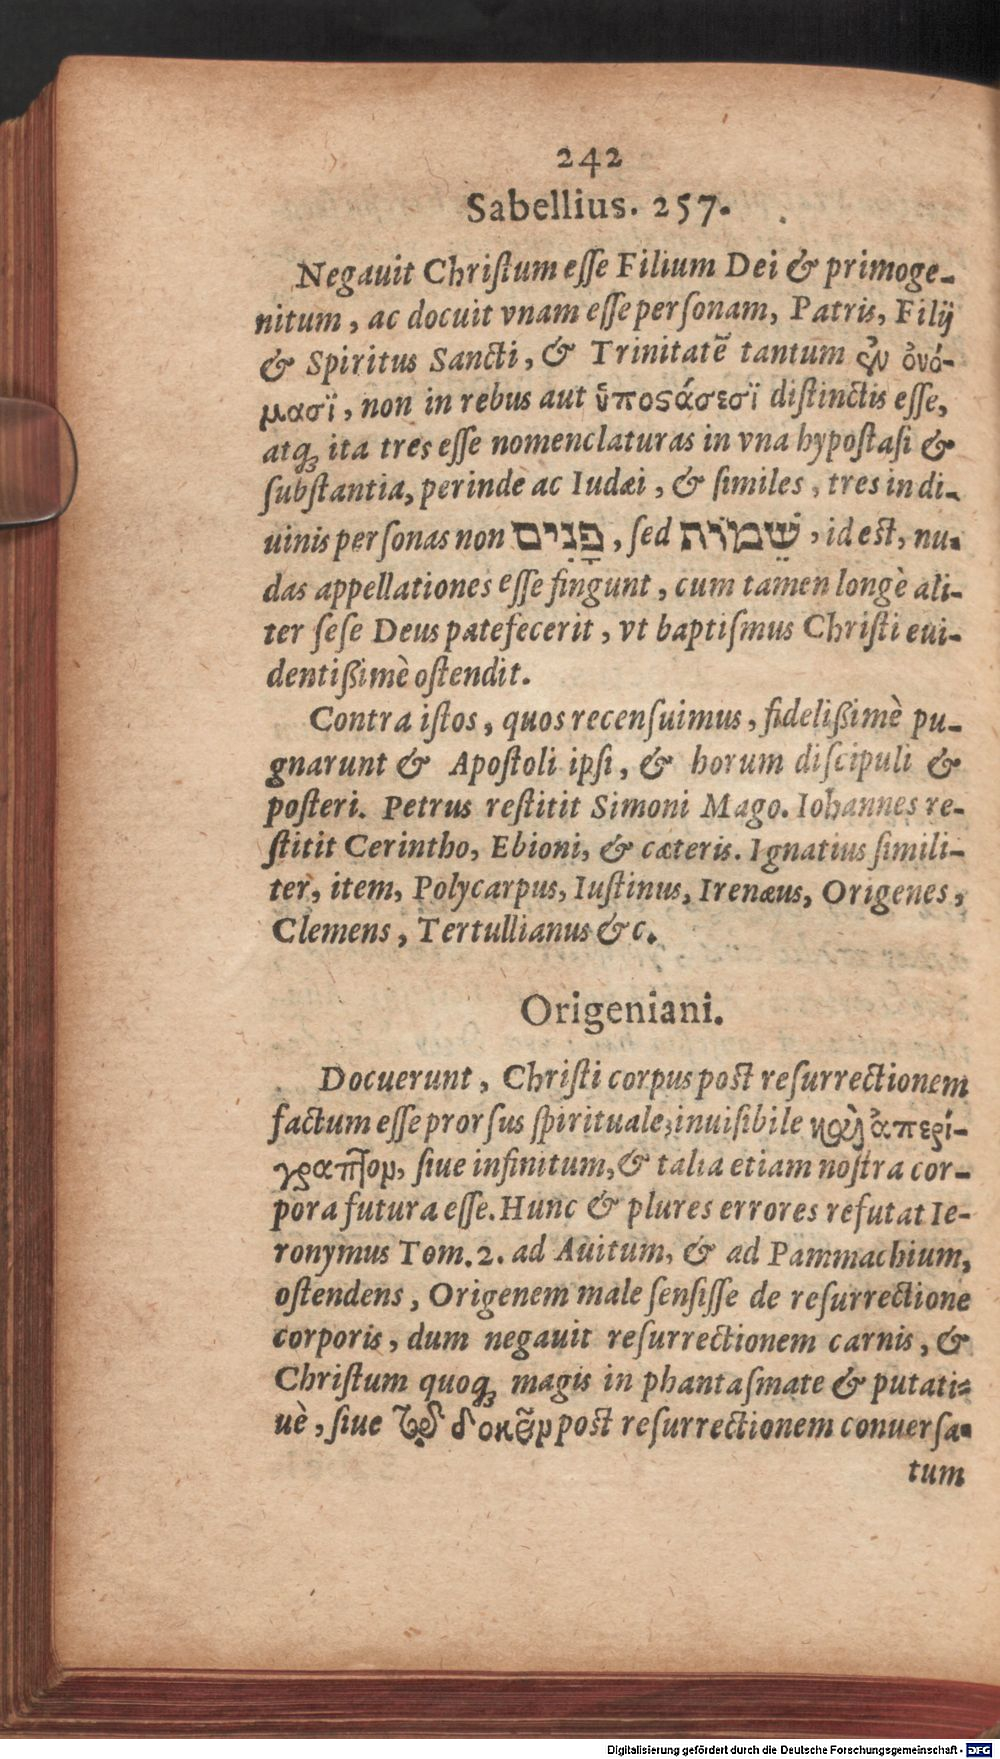 242
Sabellius. 257.
Negauit Chriſtum eſſe Filium Dei & primoge-
nitum, ac docuit vnam eſſe perſonam, Patris, Filij
& Spiritus Sancti, & Trinitatẽ tantum ἐν ὀνό-
μασϊ, non in rebus aut ὑποςάσεσϊ diſtinctis eſſe,
atq; ita tres eſſe nomenclaturas in vna hypoſtaſi &
ſubſtantia, perinde ac Iudæi, & ſimiles, tres in di-
uinis perſonas non פָּנִים, ſed שֵׁמוֹת, id est, nu-
das appellationes eſſe fingunt, cum tamen longè ali-
ter ſeſe Deus patefecerit, vt baptiſmus Chriſti eui-
dentißimè oſtendit.
Contra iſtos, quos recenſuimus, fidelißimè pu-
gnarunt & Apoſtoli ipſi, & horum diſcipuli &
poſteri. Petrus reſtitit Simoni Mago. Iohannes re-
ſtitit Cerintho, Ebioni, & cæteris. Ignatius ſimili-
ter, item, Polycarpus, Iuſtinus, Irenæus, Origenes,
Clemens, Tertullianus &c.
Origeniani.
Docuerunt, Chriſti corpus post reſurrectionem
factum eſſe prorſus ſpirituale, inuiſibile καὶ ἀπερί-
γραπτον, ſiue infinitum, & talia etiam noſtra cor-
pora futura eſſe. Hunc & plures errores refutat Ie-
ronymus Tom. 2. ad Auitum, & ad Pammachium,
oſtendens, Origenem male ſenſiſſe de reſurrectione
corporis, dum negauit reſurrectionem carnis, &
Chriſtum quoq; magis in phantaſmate & putati-
uè, ſiue τῷ δοκεῖν post reſurrectionem conuerſa-
tum
Digitalisierung gefördert durch die Deutsche Forschungsgemeinschaft - DFG